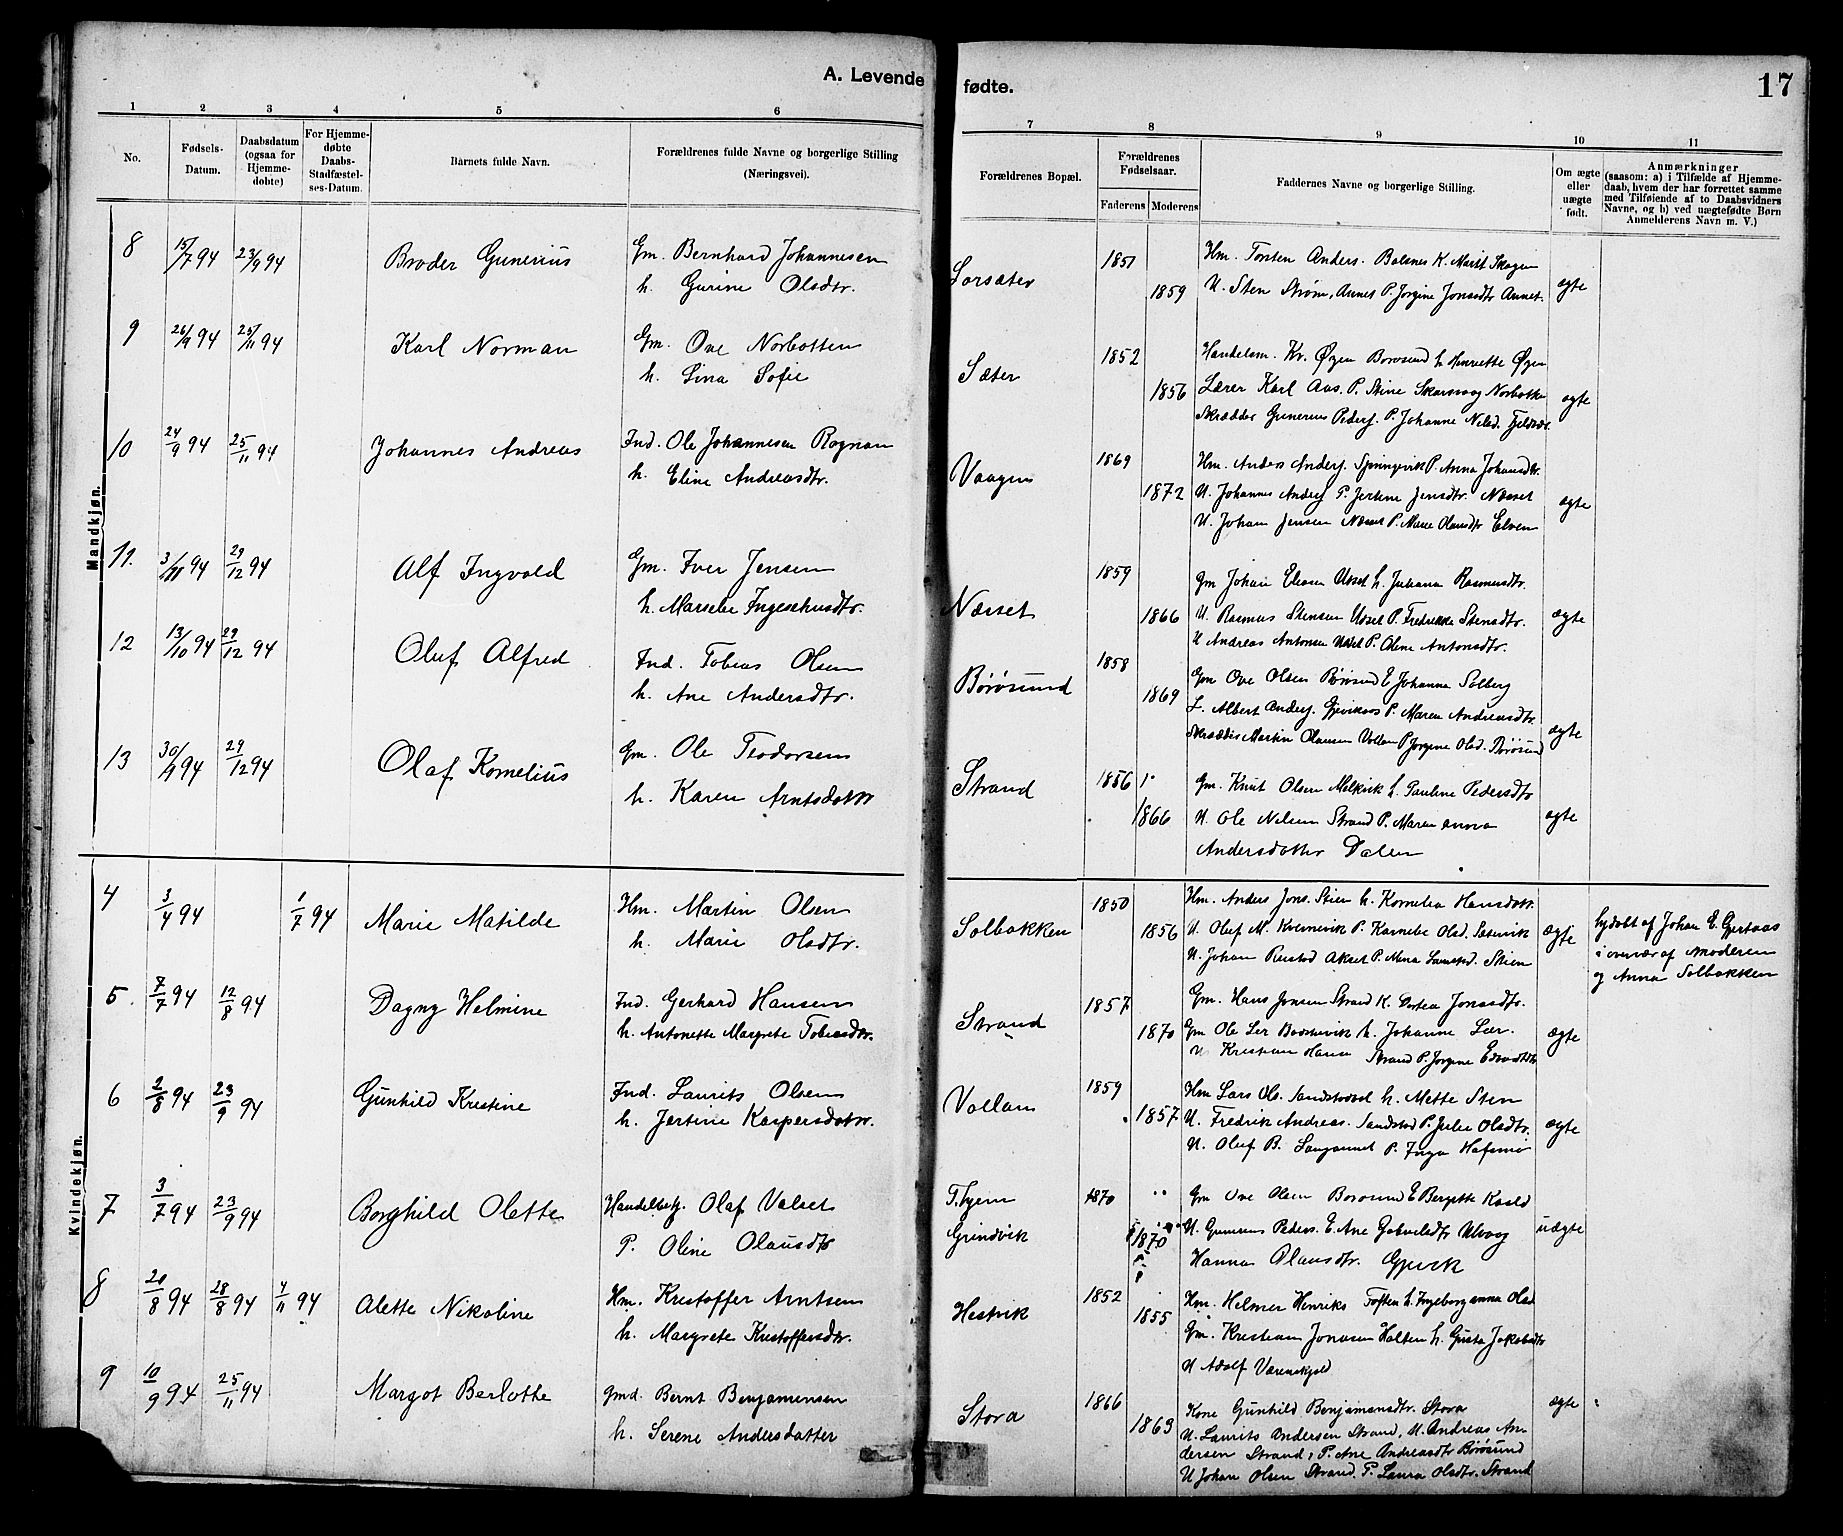 A. Levende fødte.
17
1 2 3 4 5 6 7 8 9 10 11
No.
Fødsels-Datum.
Daabsdatum (ogsaa for Hjemme-døbte)
For Hjemme-døbte Daabs-Stadfæstel-ses-Datum.
Barnets fulde Navn.
Forældrenes fulde Navne og borgerlige Stilling (Næringsvei).
Forældrenes Bopæl.
Forældrenes Fødselsaar.
Faderens Moderens
Faddernes Navne og borgerlige Stilling.
Om ægte eller uægte født.
Anmærkninger
(saasom: a) i Tilfælde af Hjemme-
daab, hvem der har forrettet samme
med Tilføiende af to Daabsvidners
Navne, og b) ved uægtefødte Børn
Anmelderens Navn m. V.)
Mandkjøn.
8 15/7 94 23/9 94 Broder Gunerius Gm. Bernhard Johannesen
h. Gurine Olsdtr.
Sorsæter 1851 1859
Hm. Torsten Anders. Balsnes K. Marit Skagen
U. Sten Strøm, Annes P. Jorgine Jonsdtr Annet.
ægte
9 26/9 94 25/11 94 Karl Norman Gm. Ove Norbotten
h. Lina Sofie
Sæter 1852 1856
Handelsm. Kr. Øyen Borøsund h. Henriette Øyen
Lærer Karl Aas. P. Stine Skarsvaag Norbotten
Skrædder Gunerius Peders. P. Johanne Nilsd. Fjeldvær
ægte
10 24/9 94 25/11 94 Johannes Andreas Ind. Ole Johannesen Rognan
h. Eline Andreasdtr.
Vaagen 1869 1872
Hm. Anders Anders. Springvik P. Anna Johansdtr.
U. Johannes Anders P. Jertine Jensdtr. Næsset
U. Johan Jensen Næsset P. Marie Olausdtr Elven
ægte
11. 3/11 94 29/12 94 Alf Ingvald Gm. Iver Jensen
h. Marsebe Ingeschusdtr.
Næsset 1859 1866
Gm Johan Eliasen Ulsset h. Juliana Rasmusdtr.
U. Rasmus Stensen Ulsset P. Fredrikke Stensdtr.
U Andreas Antonsen Ulsset P. Oline Antonsdtr.
ægte
12 13/10 94 29/12 94 Oluf Alfred Ind. Tobias Olsen
h. Ane Andersdtr.
Børøsund 1858 1869
Gm Ove Olsen Børøsund E Johanna Solberg
L. Albert Anders. Gjevikaas P. Maren Andreasdtr.
Skrædder Martin Olausen Vollan P Jorgine Olsd. Børøsund
ægte
13 30/9 94 29/12 94 Olaf Kornelius Gm. Ole Teodorsen
h. Karen Arntsdatter
Strand 1856 1866
Gm. Knut Olsen Melkvik h. Pauline Pedersdtr
U. Ole Nilsen Strand P. Maren anna
Andersdatter Dalen
ægte
Kvindekjøn.
4 3/4 94 1/7 94 Marie Matilde Hm. Martin Olsen
h. Marie Olsdtr.
Solbakken 1850 1856
Hm. Anders Jons. Stien h. Kornelia Hansdatr.
U. Oluf M. Kvernvik P. Karnebe Olsd. Sætervik
U. Johan Ristad Akset P. Mena Larsd. Skien
ægte
hjdøbt af Johan E. Gjertaas
i overvær af moderen
og Anna Solbakken
5. 7/7 94 12/8 94 Dagny Helmine Ind. Gerhard Hansen
h. Antonette Margrete Tobiasdtr.
Strand 1857 1870
Gm. Hans Jonsen Strand K. Dortea Jonasdtr.
Gm Ole Ler Badstuvik h. Johanne Lær.
U Kristian Hansn Strand P. Jorgine Edvardsdtr
ægte
6 2/8 94 23/9 94 Gunhild Kristine Ind. Laurits Olsen
h. Jertine Kaspersdatr.
Vollan 1859 1857
Hm Lars Ols. Sandstad h. Mette Sten
U. Fredrik Andreas. Sandstad P. Julie Olsdtr.
U. Oluf B. Langannet P. Inga Hafsmo
ægte
7 3/7 94 23/9 94 Borghild Olette Handelbetj. Olaf Valset
P. Oline Olausdtr
T. hjem
Grindvik 1870 1870
Gm Ove Olsen Borøsund E Bergitte Karld
U. Gunerius Peders. E. Ane Gabrielsdtr Ulvaag
Hanna Olausdtr. Gjevik
uægte
8 20/8 94 28/8 94 4/11 94 Alette Nikoline Hm. Kristoffer Arntsen
h. Margrete Kristoffersdtr.
Hestvik 1852 1855
Hm. Helmer Henriks Toften h. Ingeborganna Olsd
Gm. Kristian Jonasen Holten h. Gusta Jakobsdtr
U Adolf Værnskjold
9 10/9 94 25/11 94 Margot Berlotte Gmd. Bernt Benjamensen
h. Serene Andersdatter
Stora 1866 1863
Kone Gunhild Benjamensdtr. Stora
U. Laurits Andersen Strand, U. Andreas An-
dersen Strand, P. Ane Andreasdtr Børøsund
U Johan Olsen Strand. P. Laura Olsdtr. Strand
ægte